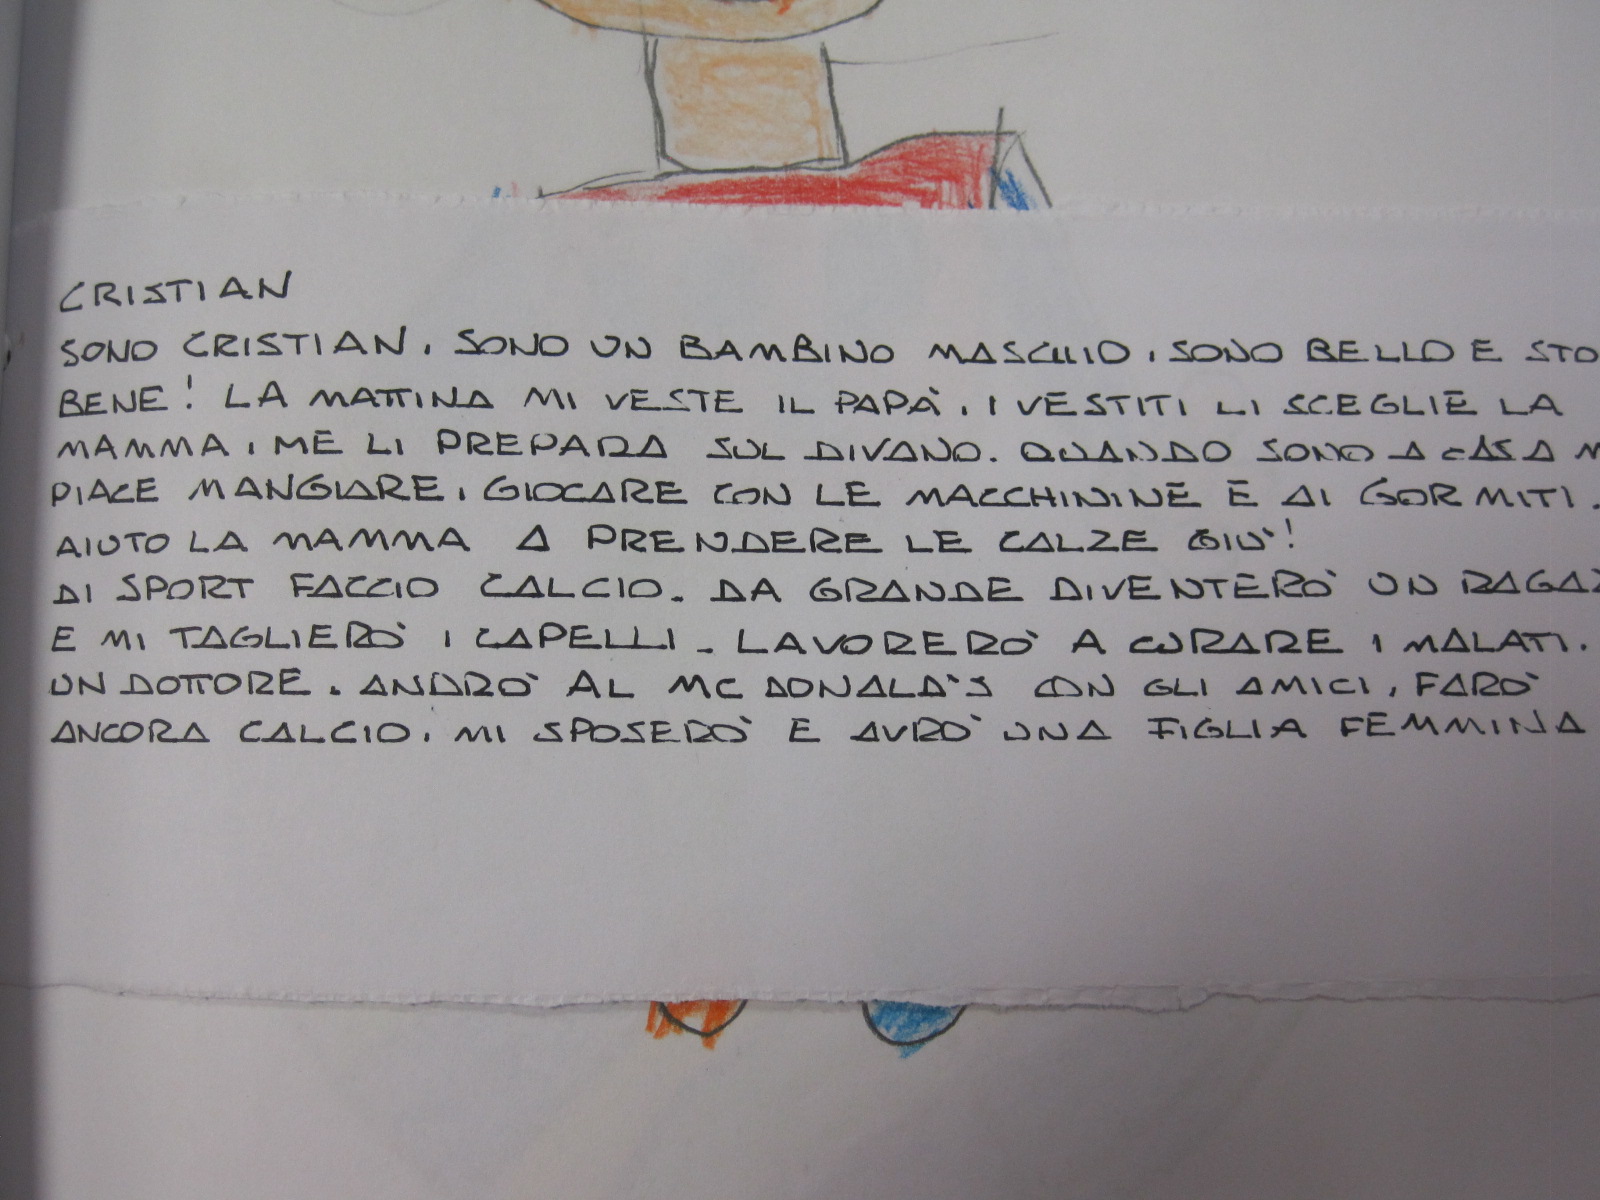 CRISTIAN
SONO CRISTIAN. SONO UN BAMBINO MASCHIO. SONO BELLO E STO
BENE! LA MATTINA MI VESTE IL PAPÀ. I VESTITI LI SCEGLIE LA
MAMMA, ME LI PREPARA SUL DIVANO. QUANDO SONO A CASA M
PIACE MANGIARE, GIOCARE CON LE MACCHININE E AI GORMITI.
AIUTO LA MAMMA A PRENDERE LE CALZE GIÙ!
DI SPORT FACCIO CALCIO. DA GRANDE DIVENTERÒ UN RAGAZ
E MI TAGLIERÒ I CAPELLI. LAVORERÒ A CURARE I MALATI.
UN DOTTORE. ANDRÒ AL MC DONALD'S CON GLI AMICI, FARÒ
ANCORA CALCIO. MI SPOSERÒ E AVRÒ UNA FIGLIA FEMMINA